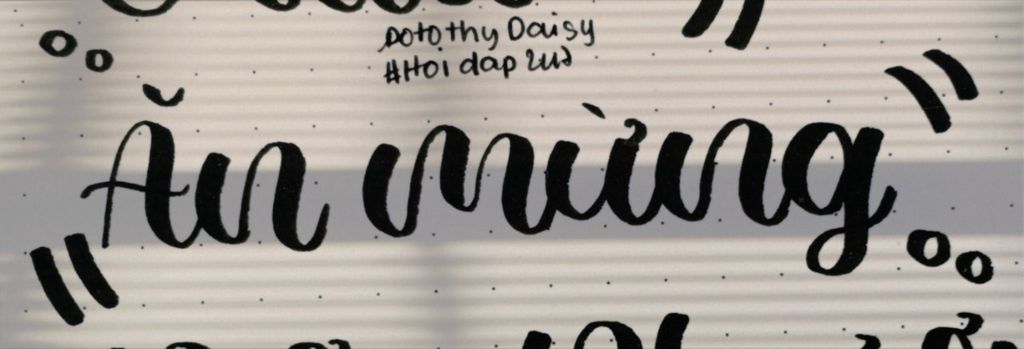 Dotothy Daisy
#Hoi dap 247
Ăn mừng